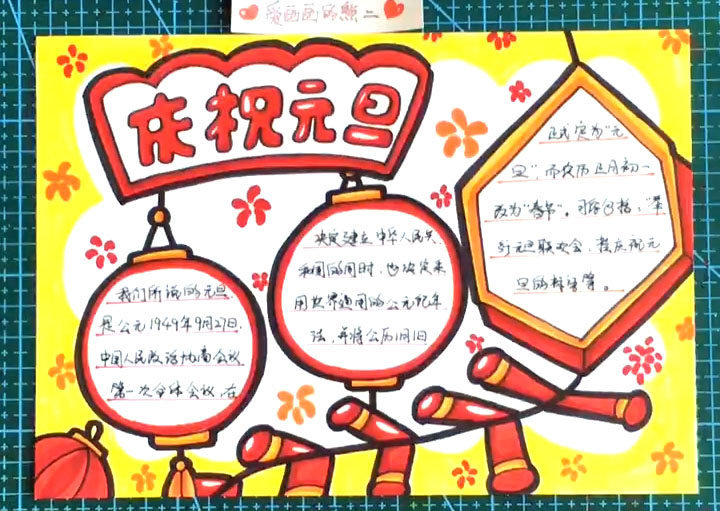 爱画画的熊二
庆祝元旦
我们所说的元旦
是公元1949年9月27日,
中国人民政治协商会议
第一次全体会议,在
决定建立中华人民共
和国的同时,也决定采
用世界通用的公元纪年
法,并将公历1月1日
正式定为"元
旦",而农历正月初一
改为"春节"。习俗包括,"举
行元旦联欢会,挂庆祝元
旦的标语等。